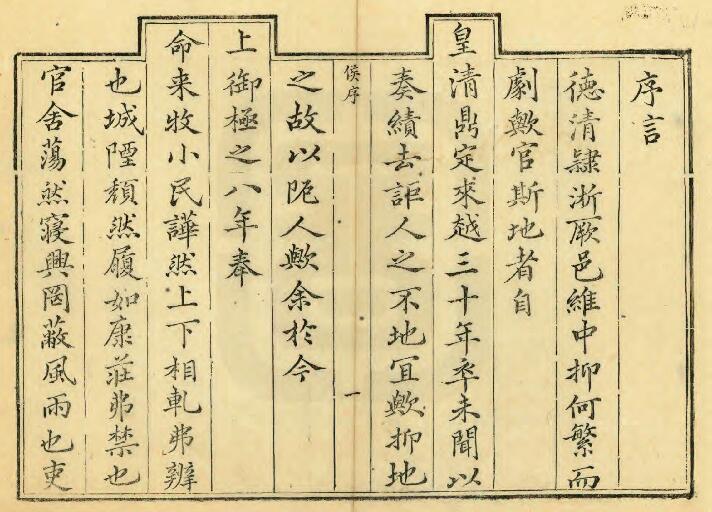 序言
德清隸浙厥邑維中抑何繁而
劇歟官斯地者自
皇清鼎定來越三十年率未聞以
奏績去詎人之不地宜歟抑地
侯序
一
之故以阨人歟余於今
上御極之八年奉
命来牧小民譁然上下相軋弗辨
也城陻頽然履如康莊弗禁也
官舍蕩然寢興罔蔽風雨也吏